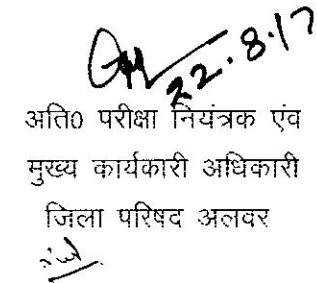 22.8.17
अति0 परीक्षा नियंत्रक एंव
मुख्य कार्यकारी अधिकारी
जिला परिषद अलवर